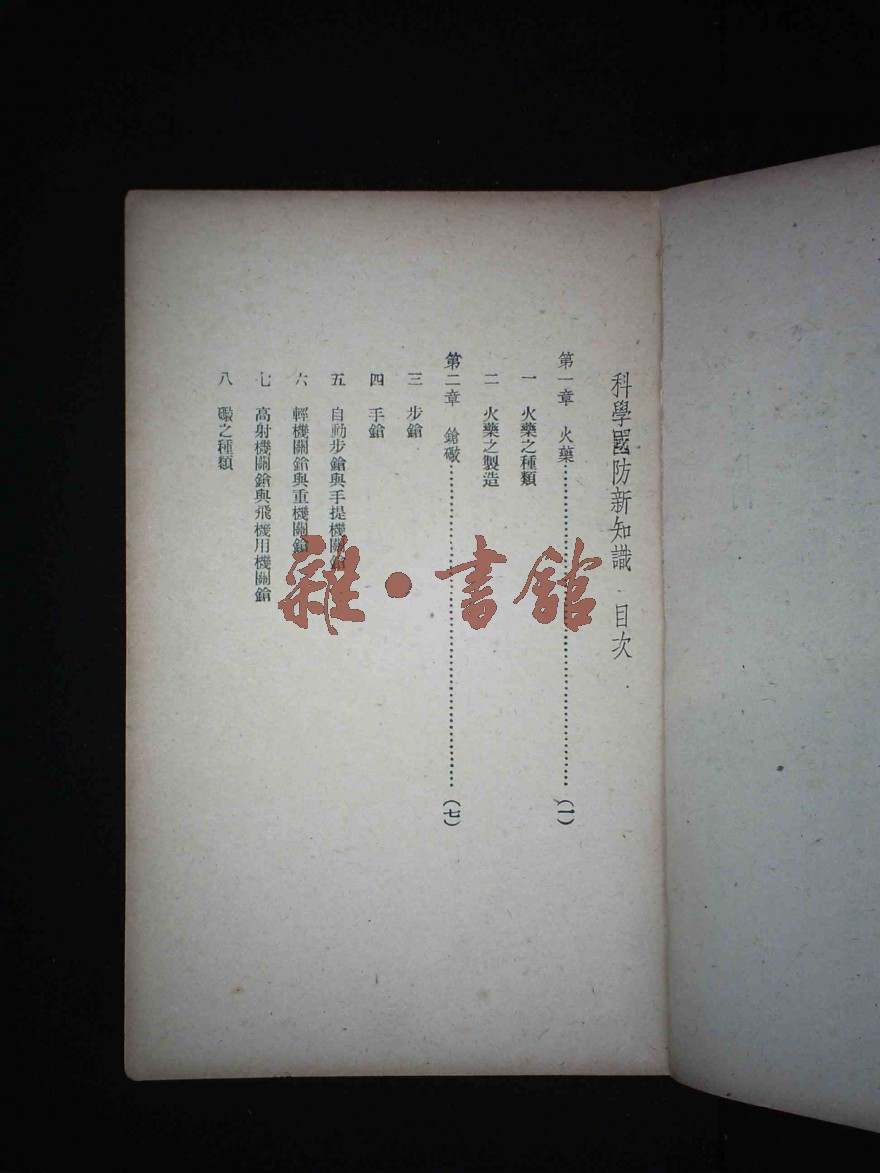 科學國防新知識 目次
第一章 火藥……(一)
一 火藥之種類
二 火藥之製造
第二章 鎗礮……(七)
三 步鎗
四 手鎗
五 自動步鎗與手提機關鎗
六 輕機關鎗與重機關鎗
七 高射機關鎗與飛機用機關鎗
八 礮之種類
雜·書館